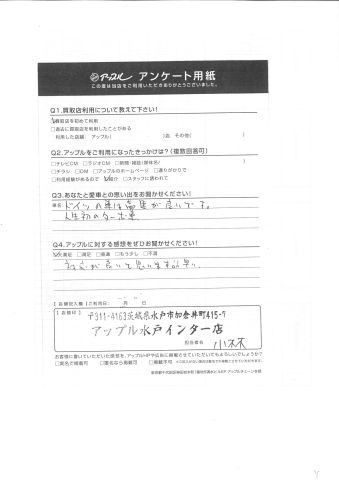 アップル アンケート用紙
この度は当店をご利用いただきありがとうございました。
Q1.買取店利用について教えて下さい!
買取店を初めて利用
□過去に買取店を利用したことがある
利用した店舗 アップル( )店 その他( )
Q2.アップルをご利用になったきっかけは?(複数回答可)
□テレビCM □ラジオCM □新聞・雑誌(媒体名/ )
□チラシ □DM □アップルのホームページ □通りがかりで
□利用経験があるので 紹介 □スタッフに誘われて
Q3.あなたと愛車との思い出をお聞かせください!
車名: ドイツの車は
人生初の
Q4.アップルに対する感想をぜひお聞かせください!
大満足 □満足 □普通 □もう少し □不満
【お客様記入欄】ご利用日: 月 日
【店舗印】
〒311-4163茨城県水戸市加倉井町415-7
アップル水戸インター店
担当者名 小林
お客様に書いていただいた感想を、アップルHPや広告に掲載させていただいてもよろしいでしょうか?
□実名で掲載可 □匿名なら掲載可 □イニシャルなら掲載可 □掲載不可